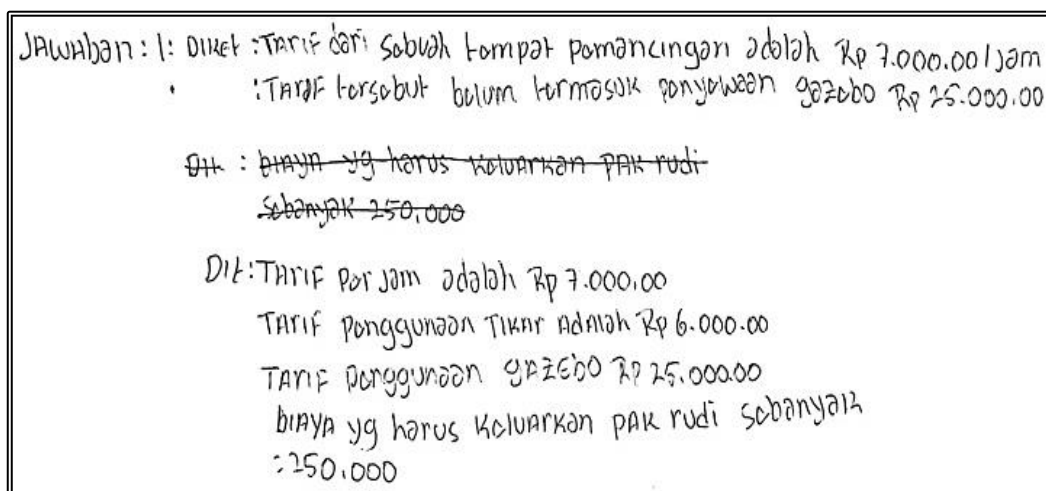 JAWAban : 1: DIKEt : TArif dari sebuah tempat pemancingan adalah Rp 7.000.00 / jam
: TArif tersebut belum termasuk penyewaan gazebo Rp 25.000.00
Dit : bIAyA yg harus KeluArkan PAK rudi
sebanyak 250.000
DIt : TArIF per jam adalah Rp 7.000.00
TArIF penggunaan TIKAr AdAlah Rp 6.000.00
TArIF penggunaan gAZEbO Rp 25.000.00
bIAyA yg harus KeluArkan pAK rudi sebanyak
: 250.000